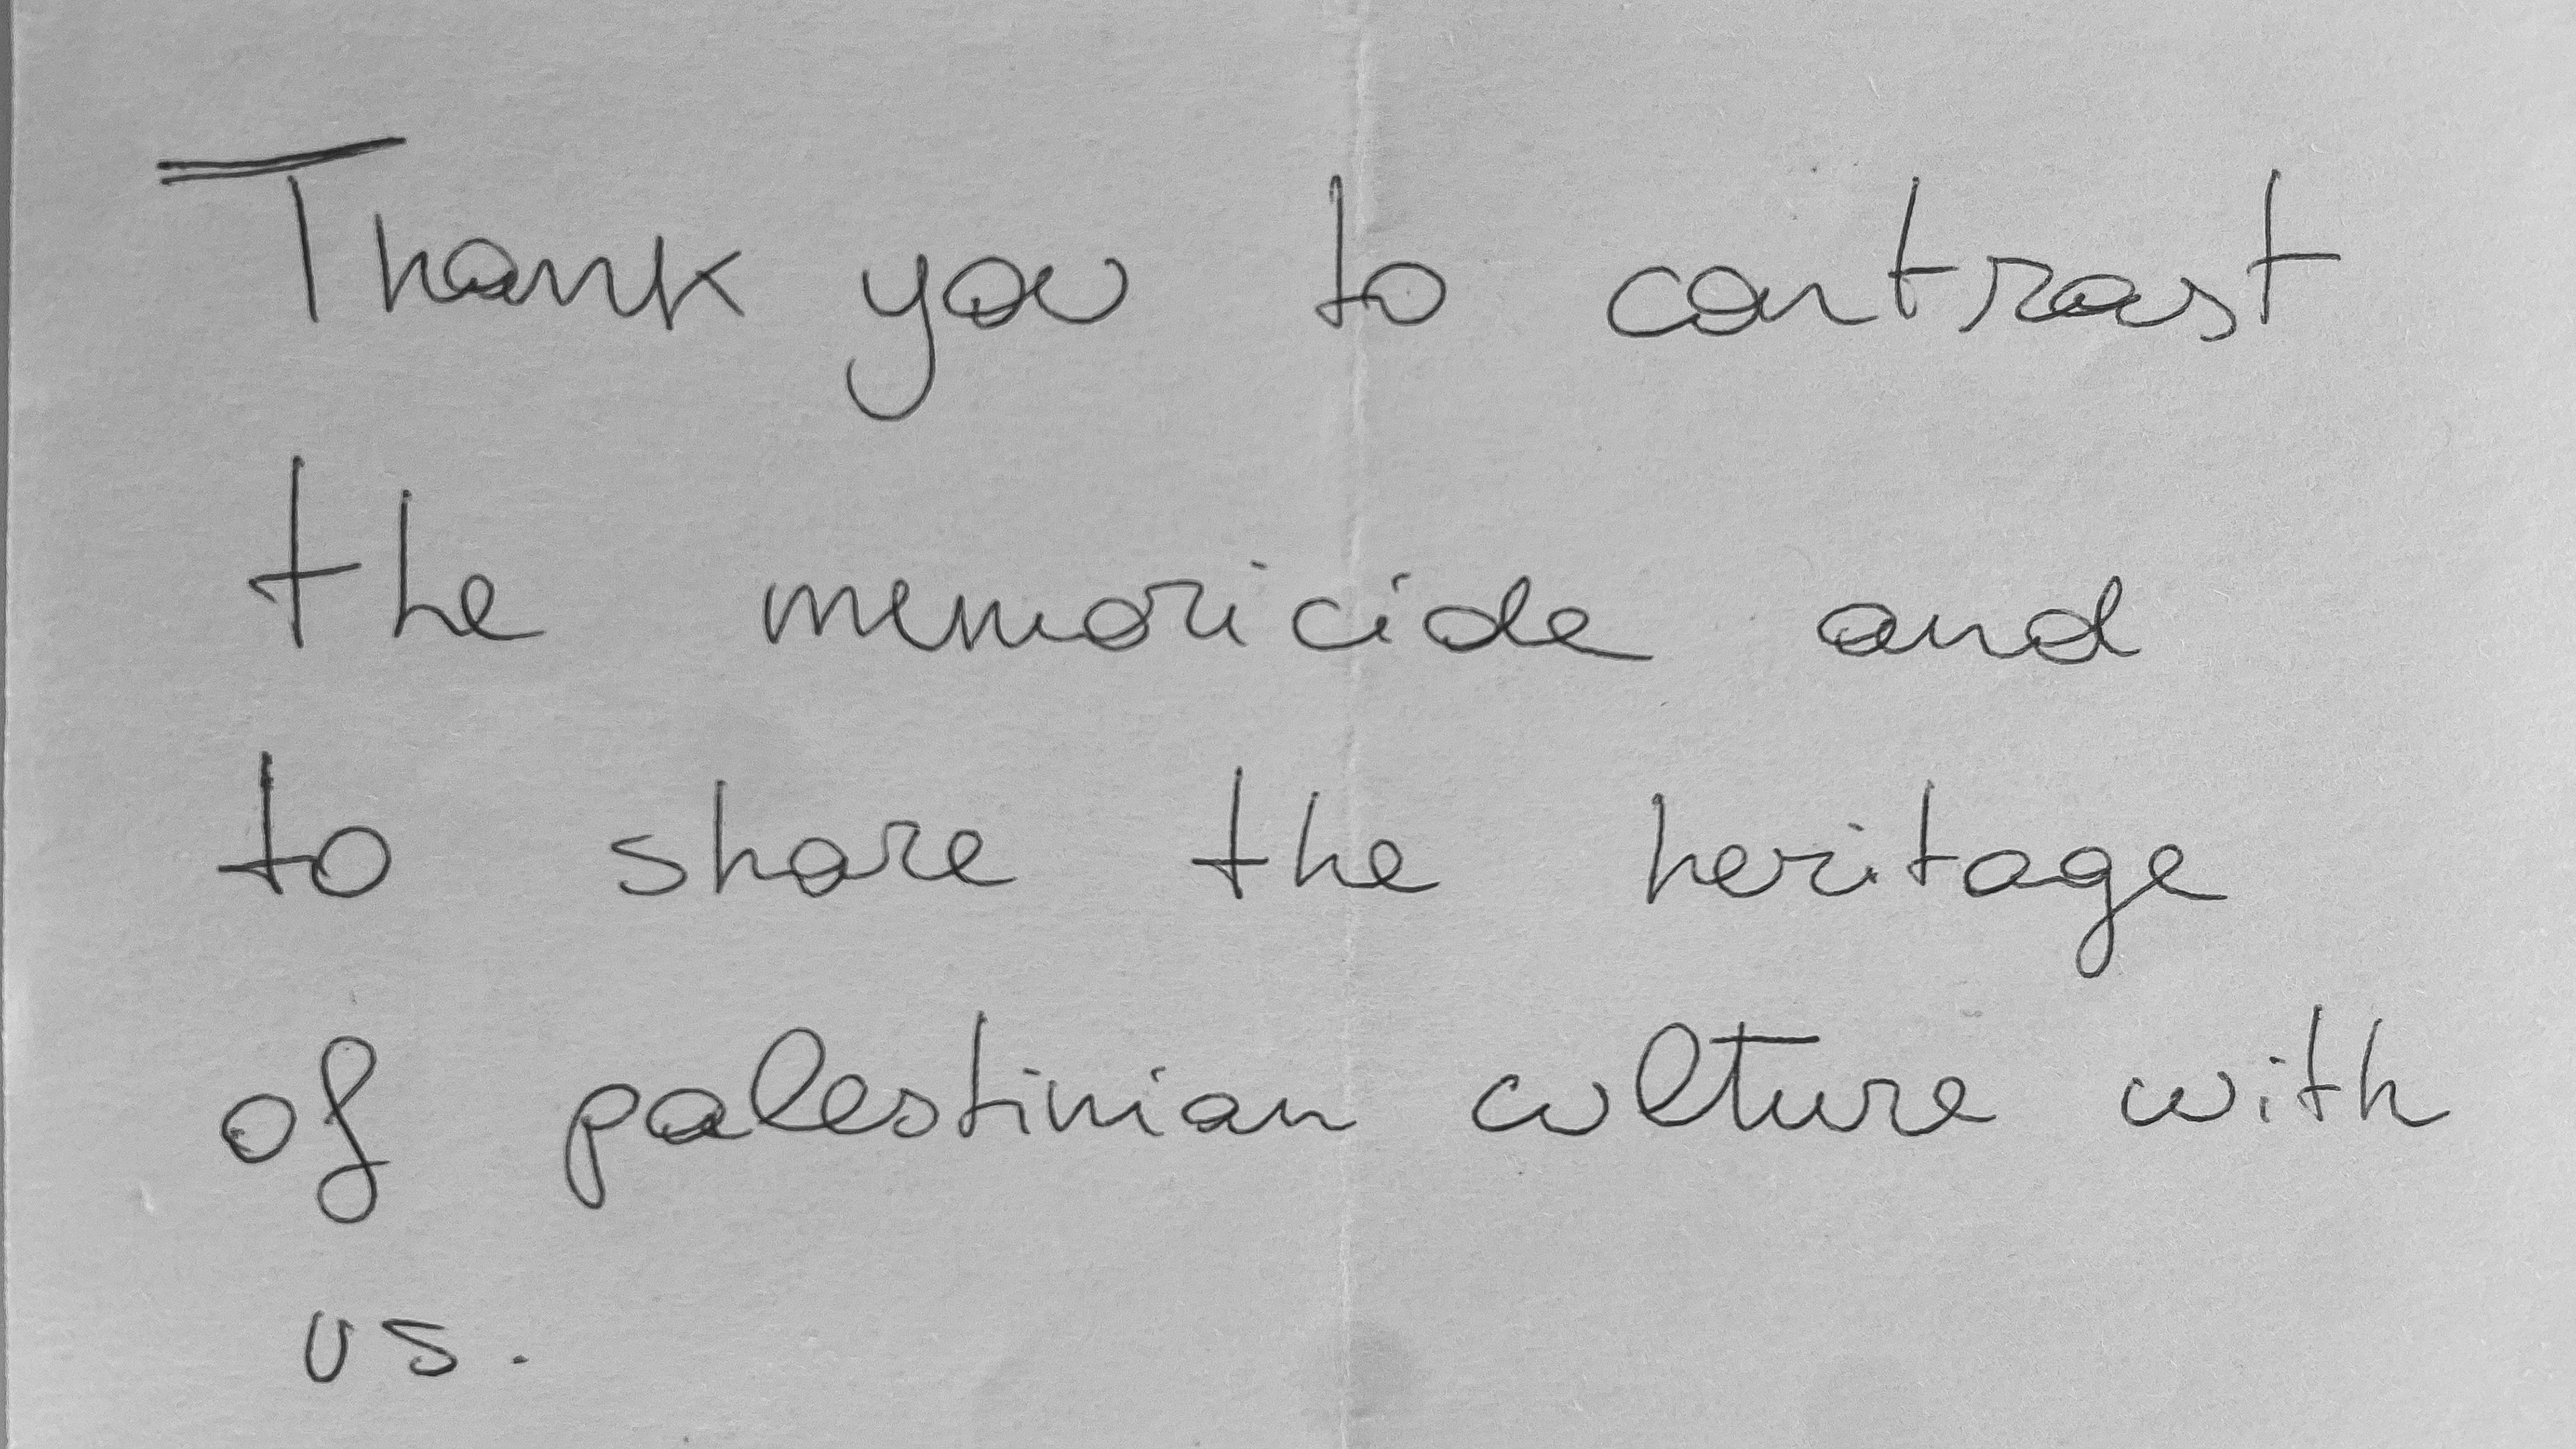 Thank you to contrast
the memoricide and
to share the heritage
of palestinian culture with
us.